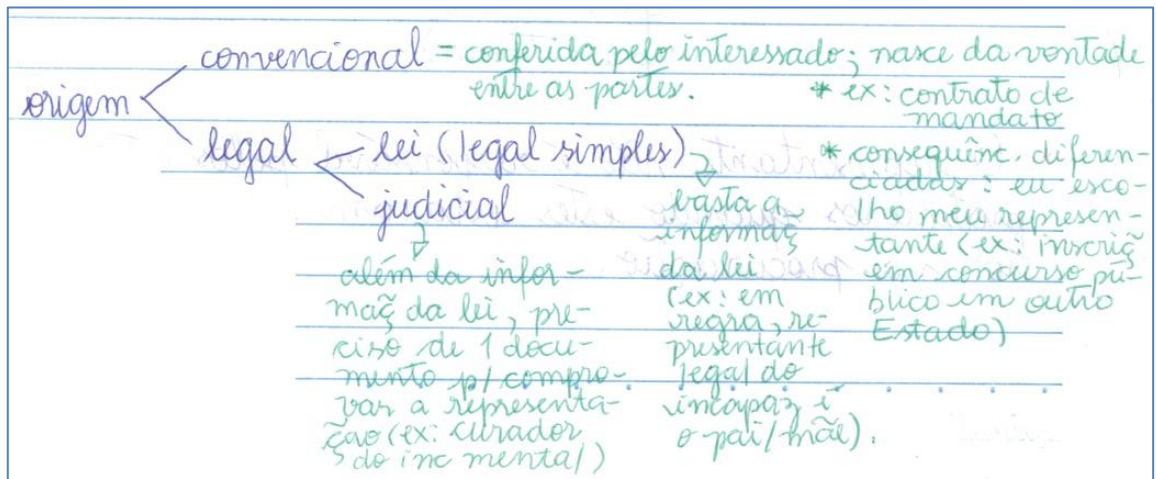 convencional = conferida pelo interessado; nasce da vontade
entre as partes.
* ex: contrato de
mandato
origem
legal
lei (legal simples)
judicial
* consequênc. diferen-
ciadas: eu esco-
lho meu represen-
tante (ex: inscriç
em concurso pú-
blico em outro
Estado)
basta a
informaç
da lei
(ex: em
regra, re-
presentante
legal do
incapaz é
o pai/mãe).
além da infor-
maç da lei, pre-
ciso de 1 docu-
mento p/ compro-
var a representa-
ção (ex: curador
do inc mental)